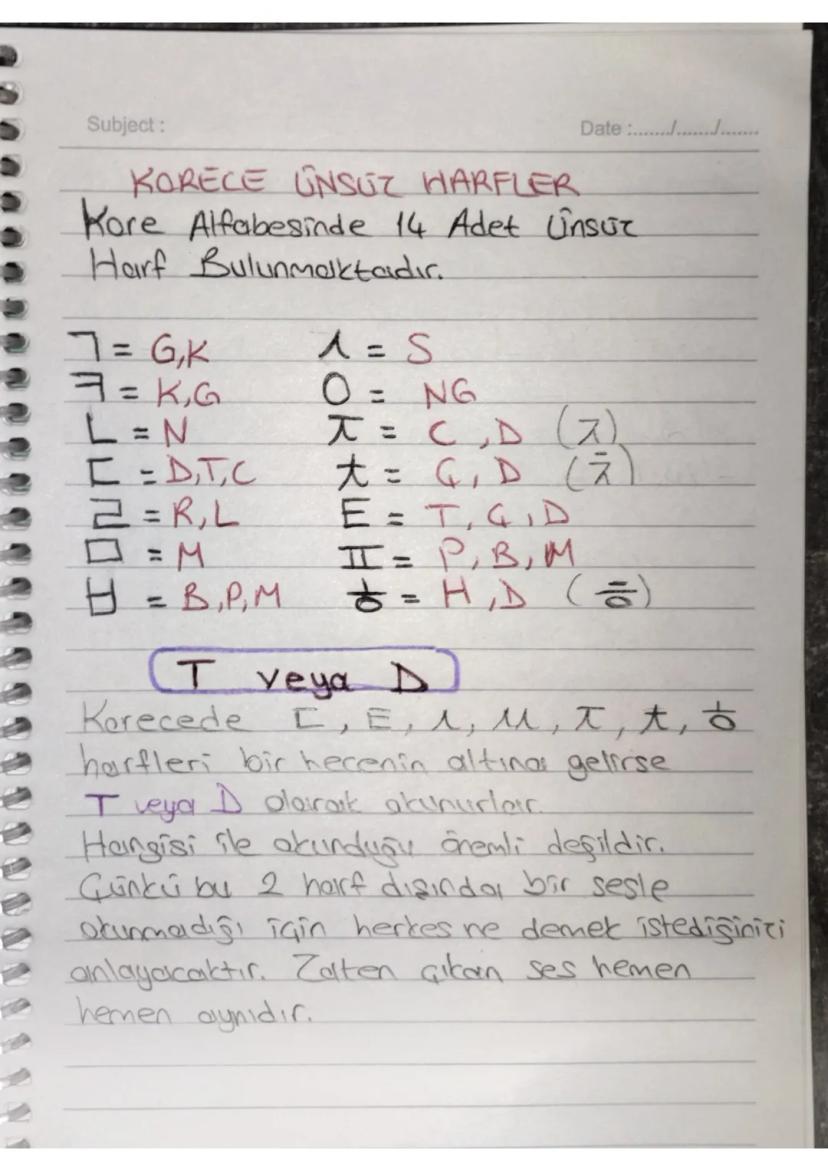 Subject :
Date :......./......./.......
KORECE ÜNSÜZ HARFLER
Kore Alfabesinde 14 Adet Ünsüz
Harf Bulunmaktadır.
ㄱ = G,K ㅅ = S
ㅋ = K,G ㅇ = NG
ㄴ = N ㅈ = C ,D (ㅈ)
ㄷ = D,T,C ㅊ = Ç, D (ㅊ)
ㄹ = R,L ㅌ = T, Ç, D
ㅁ = M ㅍ = P, B, M
ㅂ = B,P,M ㅎ = H ,D (ㅎ)
T veya D
Korecede ㄷ, ㅌ, ㅅ, ㅆ, ㅈ, ㅊ, ㅎ
harfleri bir hecenin altına gelirse
T veya D olarak okunurlar.
Hangisi ile okunduğu önemli değildir.
Çünkü bu 2 harf dışında bir sesle
okunmadığı için herkes ne demek istediğinizi
anlayacaktır. Zaten çıkan ses hemen
hemen aynıdır.